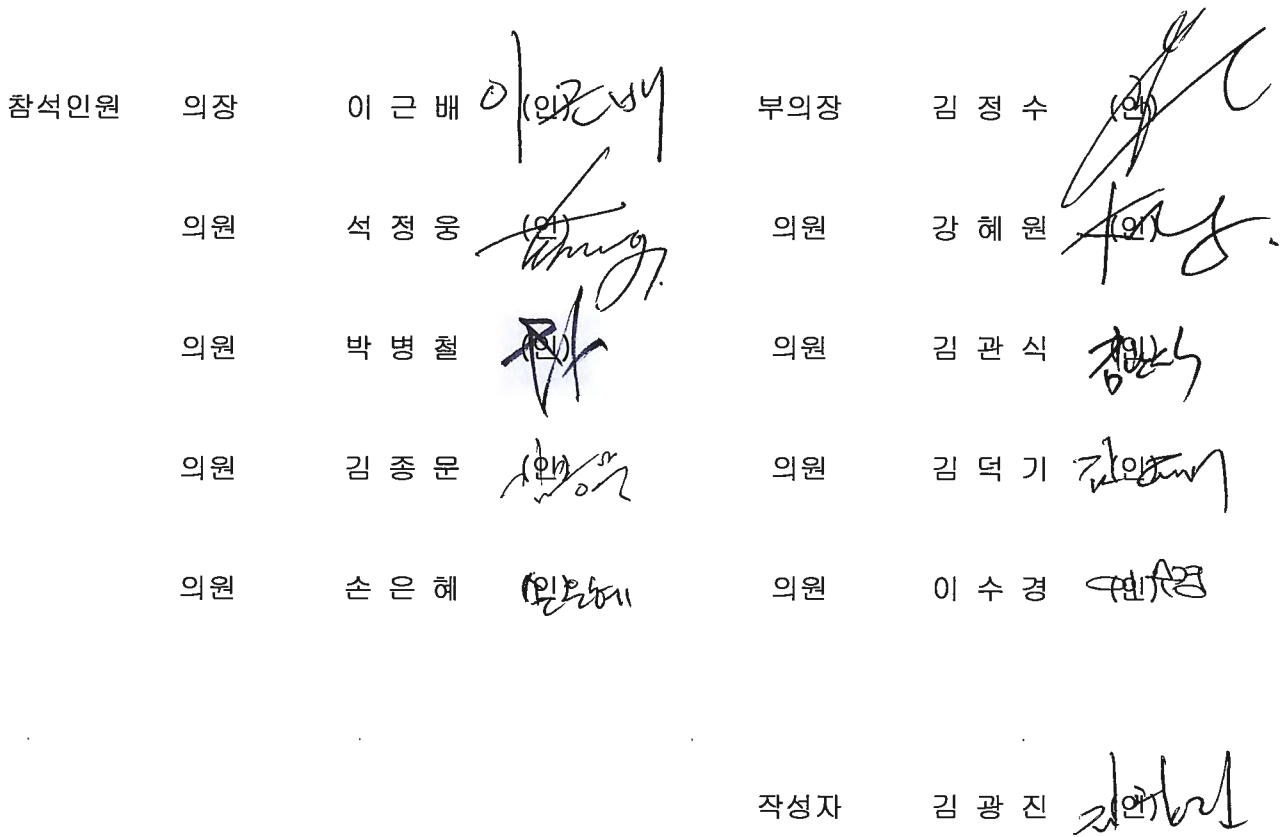 참석인원 의장 이 근 배 (인) 이근배 부의장 김 정 수 (인)
의원 석 정 웅 (인) 의원 강 혜 원 (인)
의원 박 병 철 (인) 의원 김 관 식 (인)
의원 김 종 문 (인) 의원 김 덕 기 (인)
의원 손 은 혜 (인) 의원 이 수 경 (인)
작성자 김 광 진 (인)